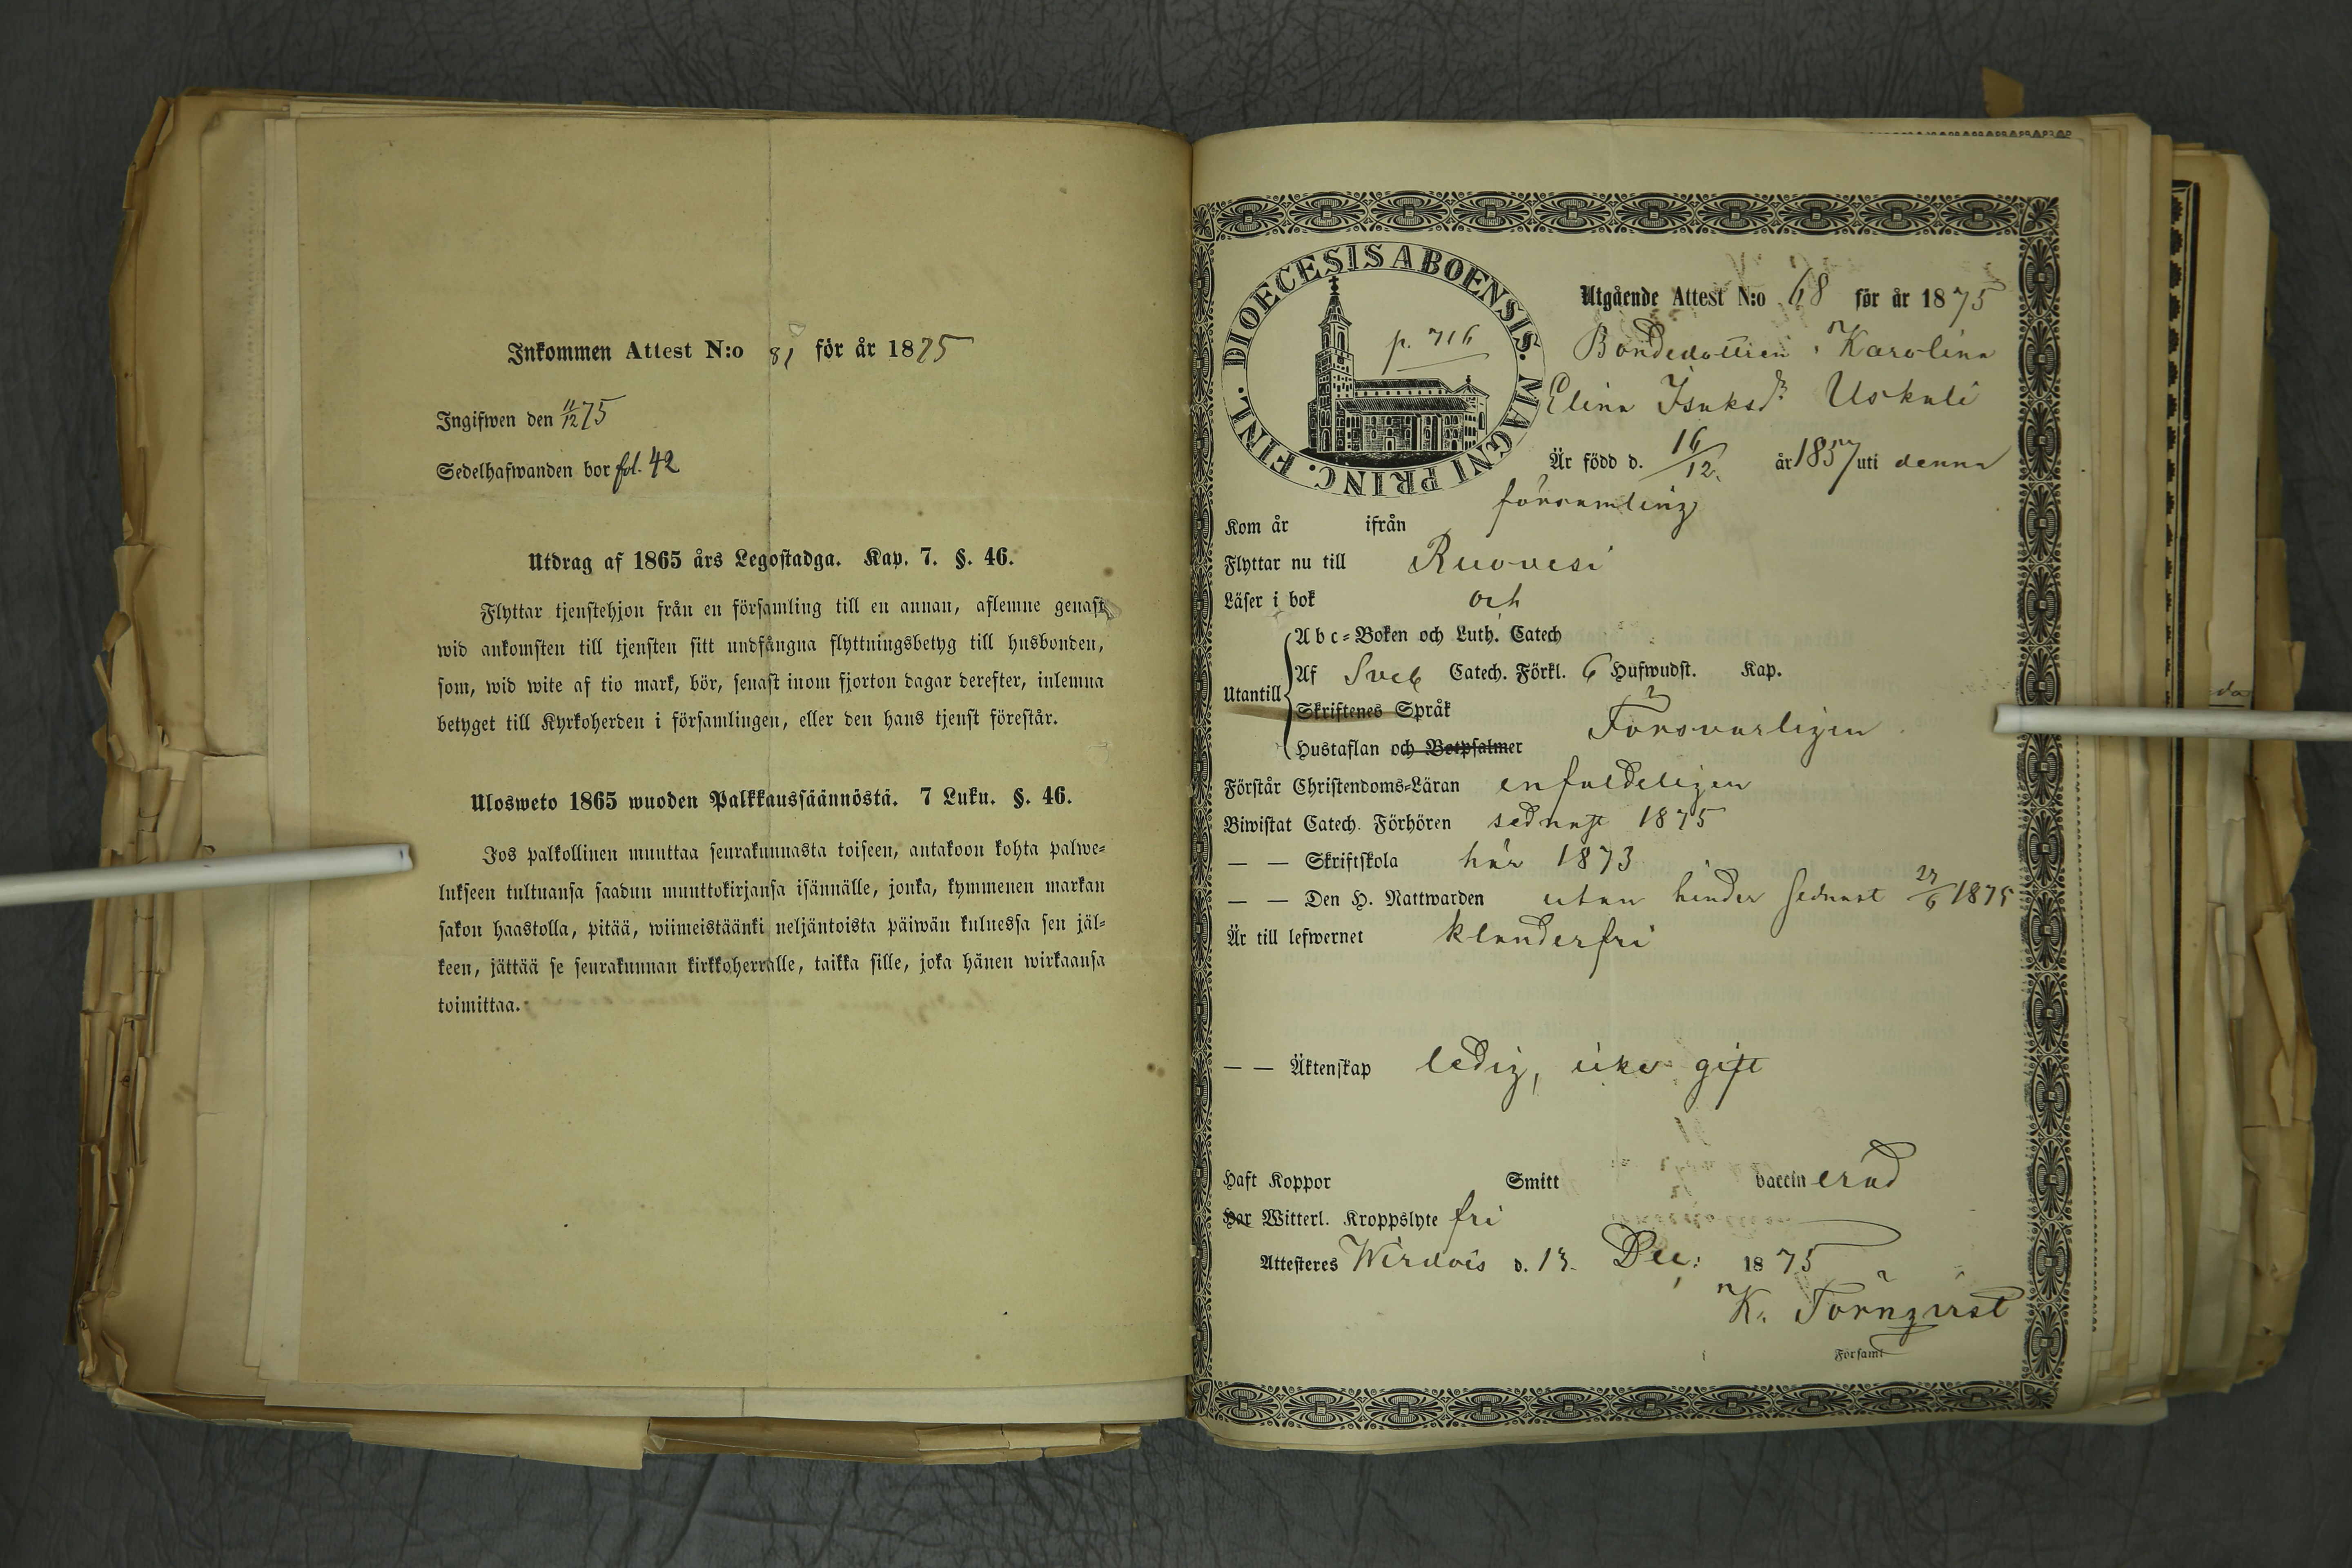 Inkommen Attest N:o 81 för år 1875
Ingifwen den 11/12 75
Sedelhafwanden bor fol. 42
Utdrag af 1865 års Legostadga. Kap. 7. §. 46.
Flyttar tjenstehjon från en församling till en annan, aflemne genast
wid ankomsten till tjensten sitt undfångna flyttningsbetyg till husbonden,
som, wid wite af tio mark, bör, senast inom fjorton dagar derefter, inlemna
betyget till Kyrkoherden i församlingen, eller den hans tjenst förestår.
Ulosweto 1865 wuoden Palkkaussäännöstä. 7 Luku. §. 46.
Jos palkollinen muuttaa seurakunnasta toiseen, antakoon kohta palwe-
lukseen tultuansa saadun muuttokirjansa isännälle, jonka, kymmenen markan
sakon haastolla, pitää, wiimeistäänki neljäntoista päiwän kuluessa sen jäl-
keen, jättää se seurakunnan kirkkoherralle, taikka sille, joka hänen wirkaansa
toimittaa.
DIOECESIS ABOENSIS. MAGNI PRINC. FINL.
p. 716
Utgående Attest N:o 68 för år 1875
Bondedottren Karolina
Elina Isaksdr Uskali
Är född d. 16/12. år 1857 uti denna
församling
Kom år ifrån
Flyttar nu till Ruovesi
Läser i bok och
Utantill
Abc-Boken och Luth. Catech
Af Sveb Catech. Förkl. 6 Hufwudst. Kap.
Skriftenes Språk
Hustaflan och Botpsalmer Försvarligen
Förstår Christendoms-Läran enfaldeligen
Biwistat Catech. Förhören sednast 1875
— — Skriftskola här 1873
— — Den H. Nattwarden utan hinder sednast 27/6 1875
Är till lefwernet klanderfri
— — Äktenskap ledig, icke gift
Haft Koppor Smitt vaccinerad
Har Witterl. Kroppslyte fri
Attesteres Wirdois d. 13. Dec: 1875
K. Törnqvist
i Församl